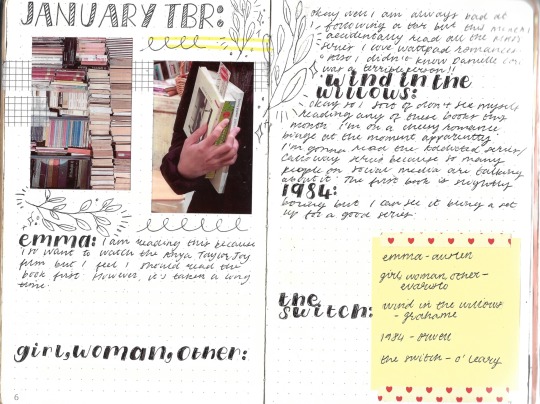 JANUARY TBR:
emma: I am reading this because
I want to watch the Anya Taylor Joy
film but I feel I should read the
book first. However, it's taken a long
time.
girl, woman, other:
6
okay well I am always bad at
following a tbr but this month I
accidentally read all the
series I love wattpad romances
also I didn't know Danielle
was a terrible person!!
wind in the
willows:
okay so I sort of don't see myself
reading any of these books this
month. I'm on a cheesy romance
binge at the moment apparently.
I'm gonna read the series/
Calloway series because so many
people on social media are talking
about it. The first book is slightly
1984:
boring but I can see it being a set
up for a good series.
the
switch:
emma - austen
girl, woman, other -
evaristo
wind in the willows
- grahame
1984 - orwell
the switch - o'leary